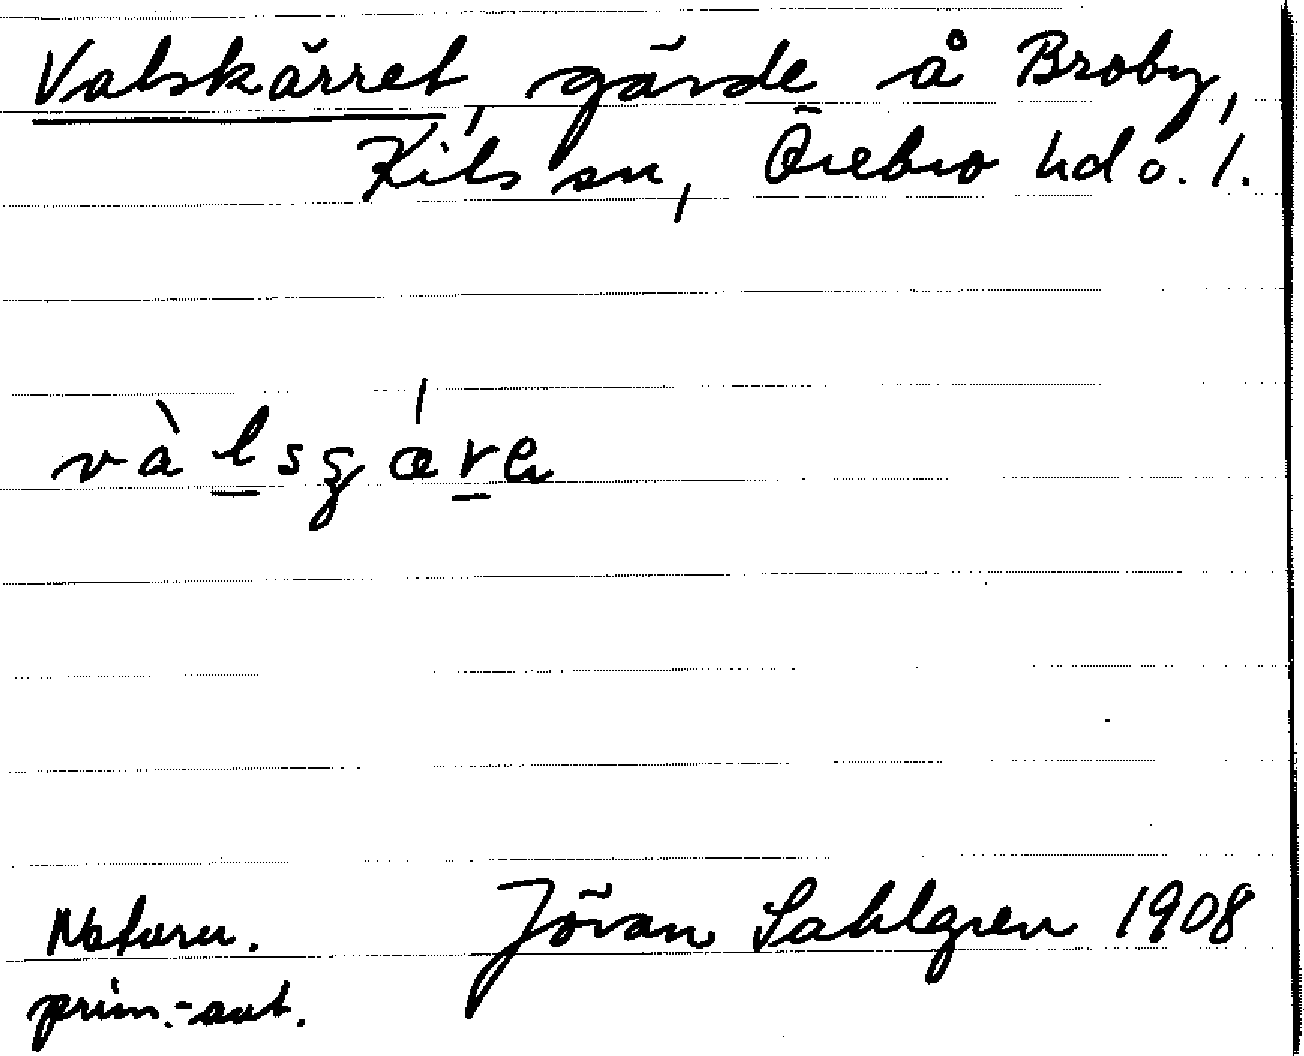 Valskärret, gärde å Broby,
Kils sn, Örebro hd o. l.
vàlsʒæ̍ꞅɐ
Naturn.
prim.-ant.
Jöran Sahlgren 1908